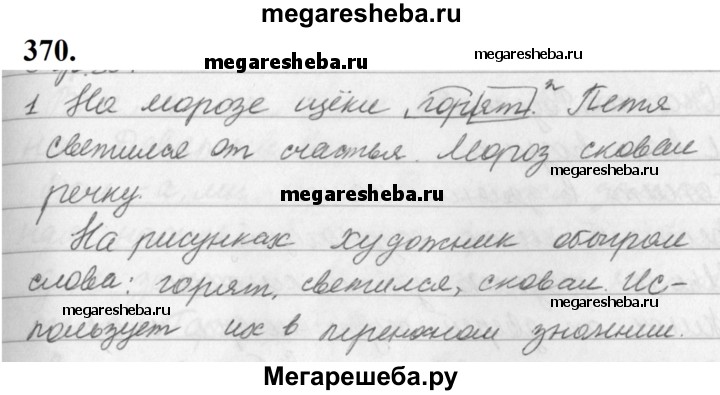 megaresheba.ru
370.
megaresheba.ru
1 На морозе щёки горят. 2 Петя
светился от счастья. Мороз сковал
megaresheba.ru
речку.
megaresheba.ru
На рисунках художник обыграл
слова: горят, светился, сковал. Ис-
megaresheba.ru
megaresheba.ru
пользует их в переносном значении.
Мегарешеба.ру